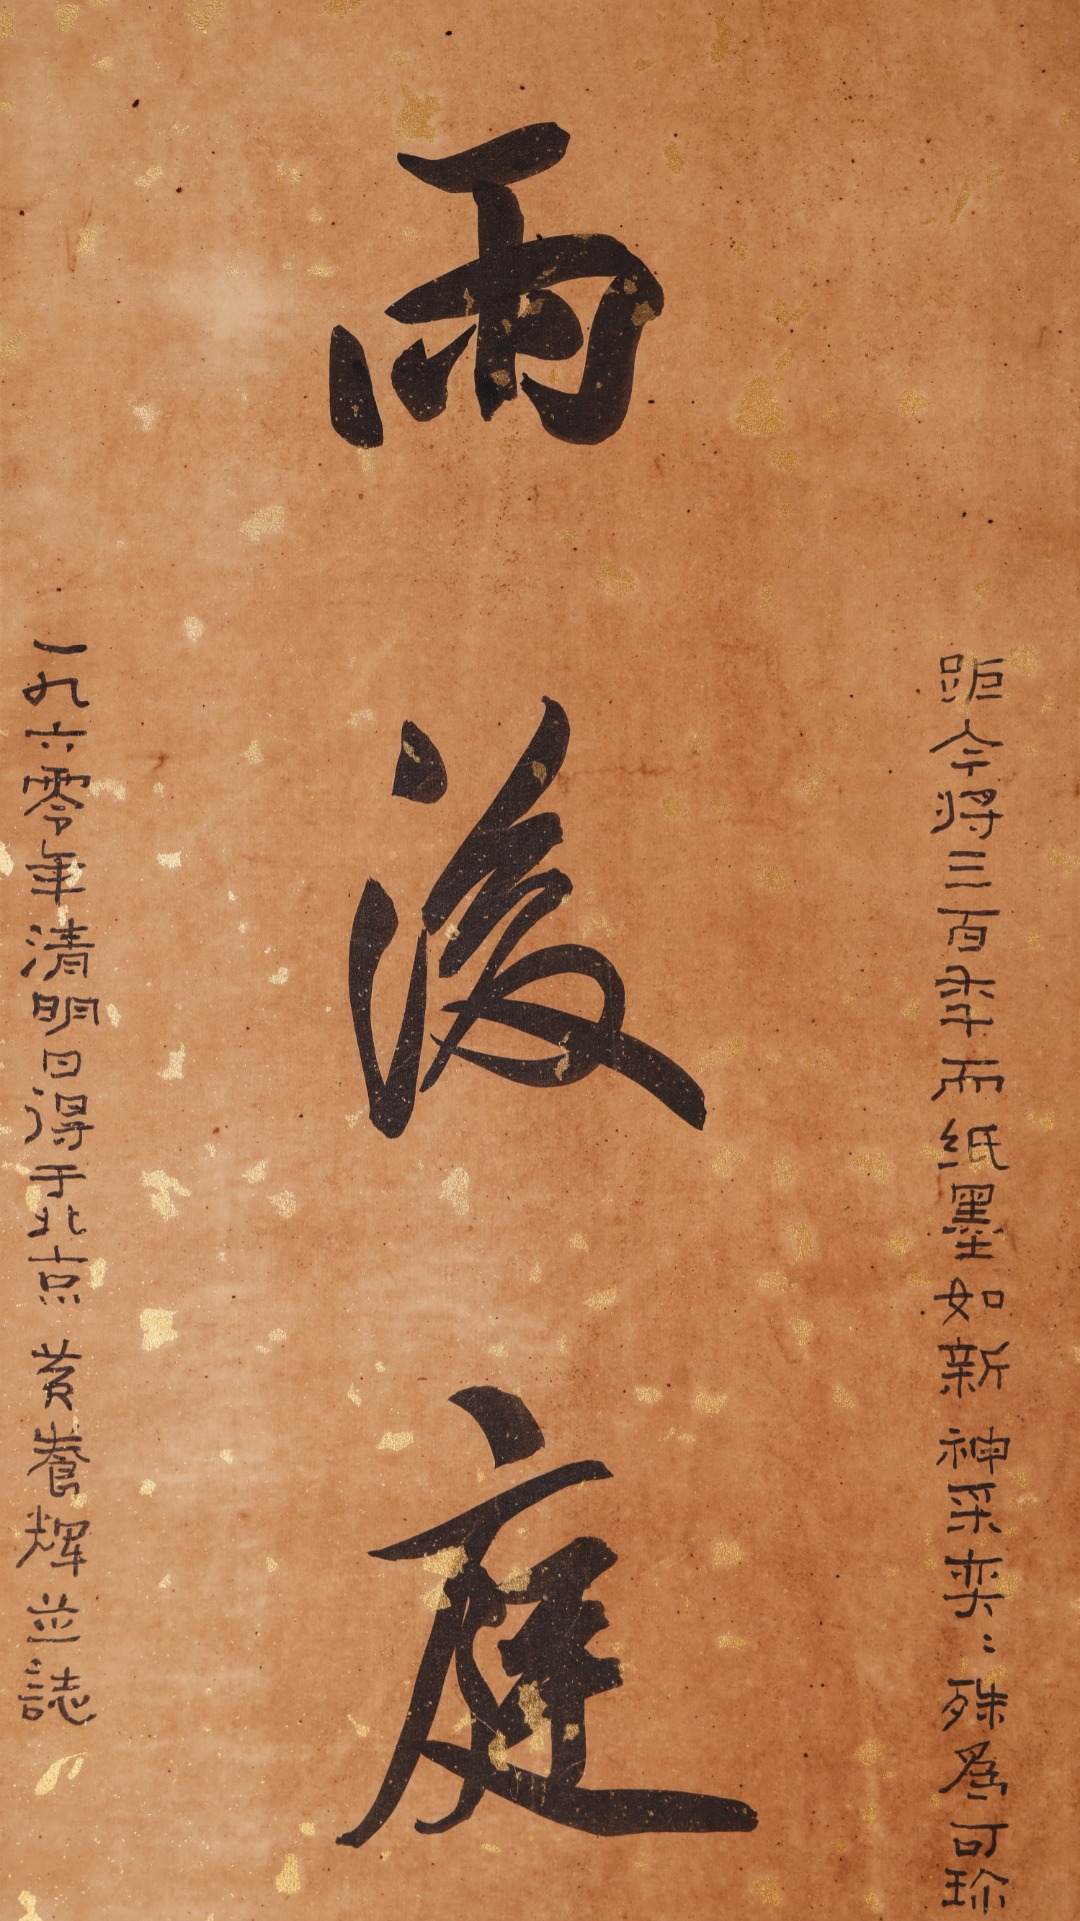 距今将三百年而纸墨如新神采奕〻殊為可珍
雨後庭
一九六零年清明日得于北京黄養辉並誌